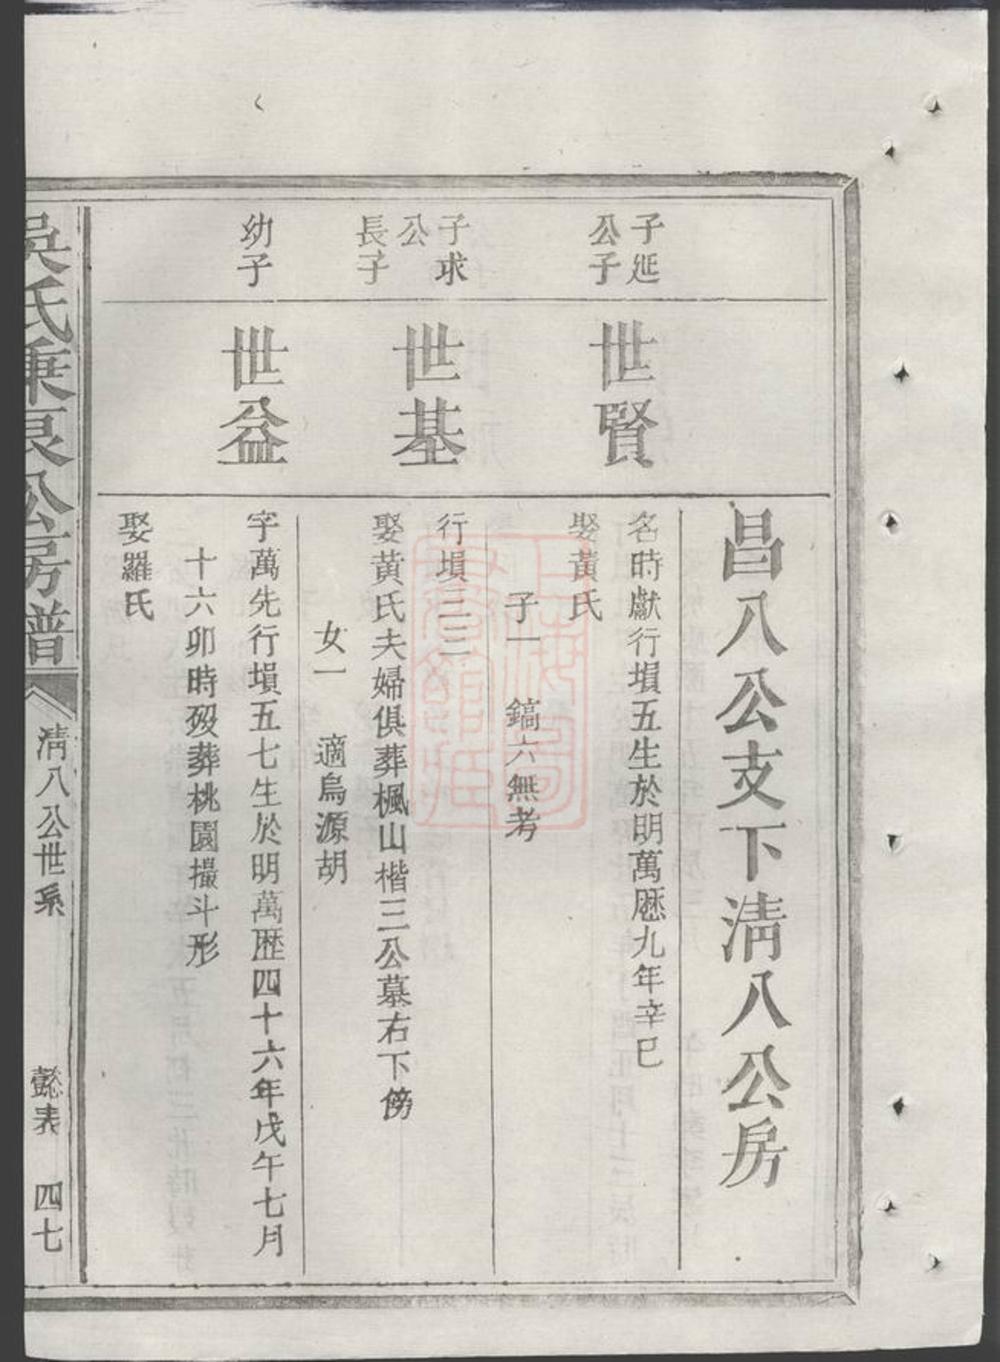 昌八公支下淸八公房
子延
公子
世賢
名時獻行塤五生於明萬歷九年辛巳
娶黃氏
子一　鎬六無考
子求
公
長子
世基
行塤三三
娶黃氏夫婦俱葬楓山楷三公墓右下傍
女一　適烏源胡
幼子
世益
字萬先行塤五七生於明萬歷四十六年戊午七月
十六卯時歿葬桃園撮斗形
娶羅氏
吳氏秉良公房譜
淸八公世系
懿表
四七